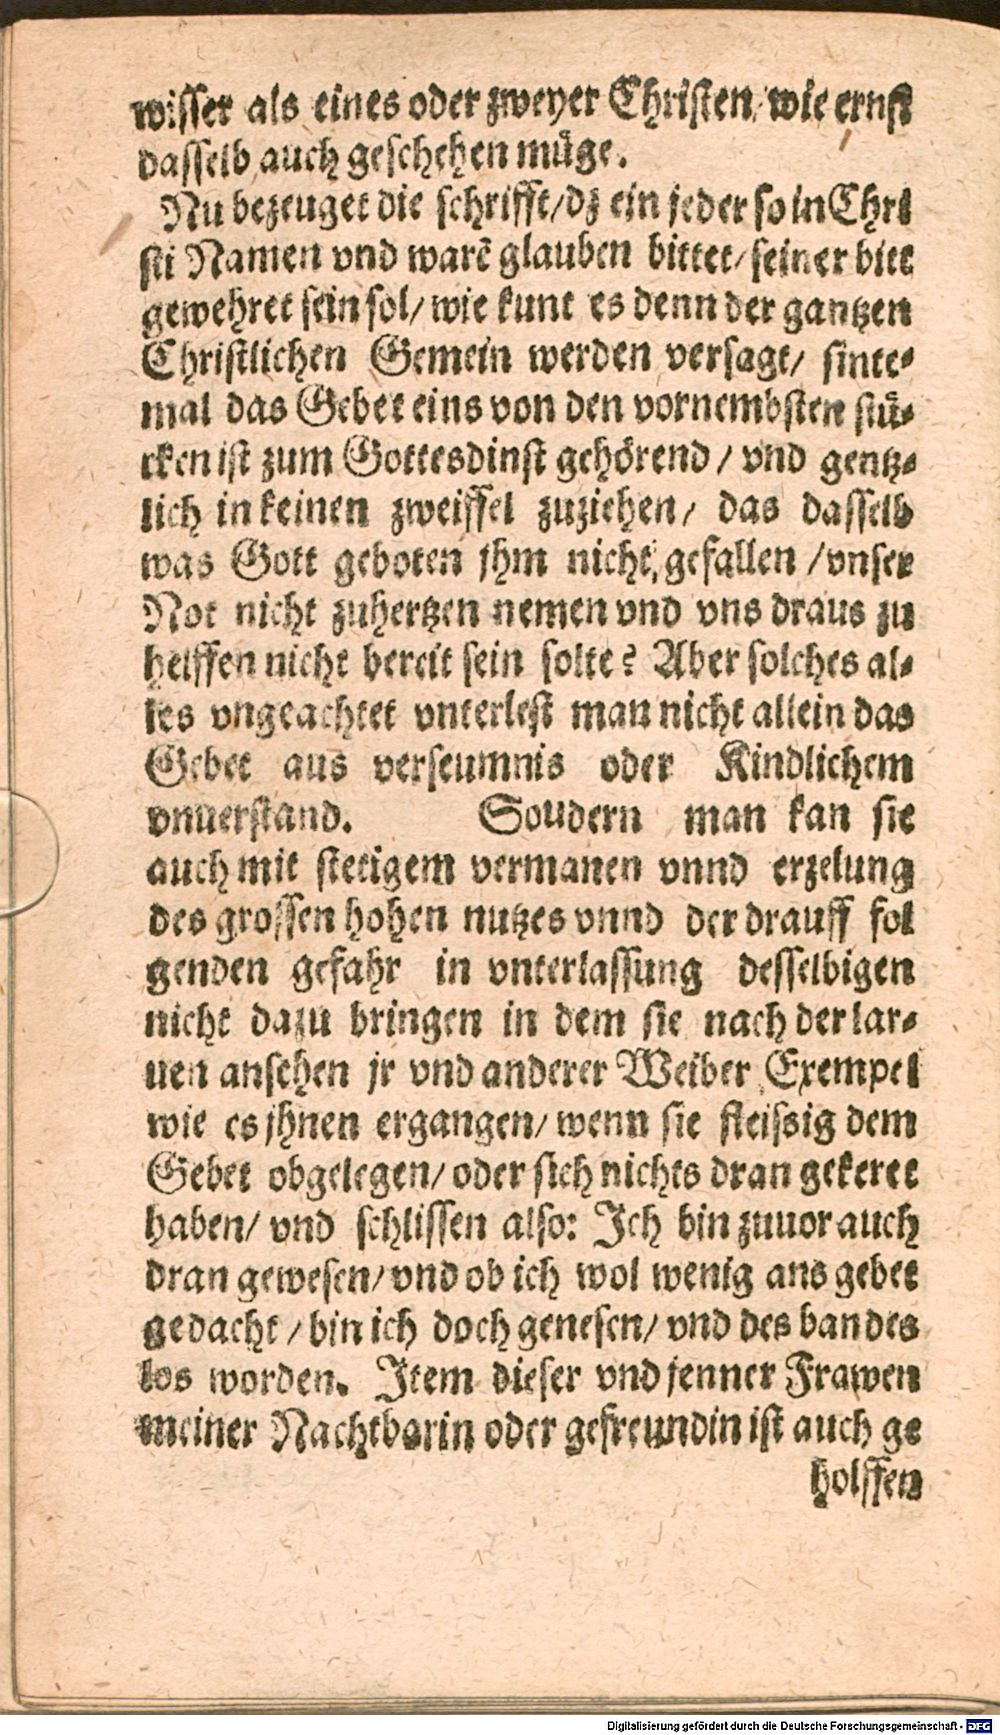 wisser als eines oder zweyer Christen, wie ernst
dasselb auch geschehen müge.
Nu bezeuget die schrifft/dz ein jeder so in Chri
sti Namen vnd warē glauben bittet/seiner bitt
gewehret sein sol/wie kunt es denn der gantzen
Christlichen Gemein werden versagt/ sinte-
mal das Gebet eins von den vornembsten stü-
cken ist zum Gottesdinst gehörend/vnd gentz-
lich in keinen zweiffel zuziehen/ das dasselb
was Gott geboten jhm nicht gefallen /vnser
Not nicht zuhertzen nemen vnd vns draus zu
helffen nicht bereit sein solte? Aber solches al-
les vngeachtet vnterlest man nicht allein das
Gebet aus verseumnis oder Kindlichem
vnuerstand. Soudern man kan sie
auch mit stetigem vermanen vnnd erzelung
des grossen hohen nutzes vnnd der drauff fol
genden gefahr in vnterlassung desselbigen
nicht dazu bringen in dem sie nach der lar-
uen ansehen jr vnd anderer Weiber Exempel
wie es jhnen ergangen/wenn sie fleissig dem
Gebet obgelegen/oder sich nichts dran gekeret
haben/ vnd schlissen also: Ich bin zuuor auch
dran gewesen/vnd ob ich wol wenig ans gebet
gedacht /bin ich doch genesen/vnd des bandes
los worden. Item dieser vnd jenner Frawen
meiner Nachtbarin oder gefreundin ist auch ge
holffen
Digitalisierung gefördert durch die Deutsche Forschungsgemeinschaft - DFG